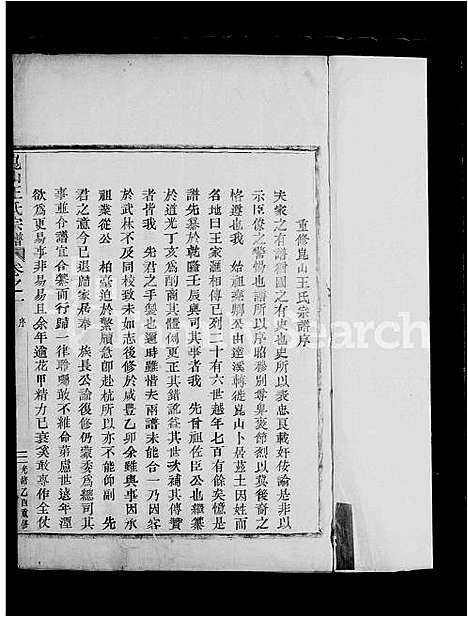 重修崑山王氏宗譜序
夫家之有譜猶國之有史也史所以表忠良載奸佞論是非以
示臣僚之警惕也譜所以序昭穆別尊卑褒節烈以冀後裔之
格遵也我 始祖 公由達溪轉徙崑山卜居茲土因姓而
名地曰王家滙傳及余之列三十有六世越年七百有餘矣憶是
譜先纂於乾隆壬辰與司其事者我 先曾祖佐臣公也繼纂
於道光丁亥爲酌商其體例更正其錯訛益其世次補其殘缺
者皆我 先君之手製也邇時難惜夫兩譜未能合一乃因客
於武林不同校致未如志後修於咸豐乙卯余雖與事因承
祖業從公 柏臺迫於繁牘急赴杭所以亦不能仰副 先
君之意今已退歸家居奉 族長公論復修仍蒙委爲總司其
事並合譜宜合纂而行歸一律聆囑敢不維命第慮世遠年湮
欲爲更易事非易易且余年逾花甲精力已衰奚敢專作全仗
崑山王氏宗譜 卷之一 序
一 光緒乙酉重修